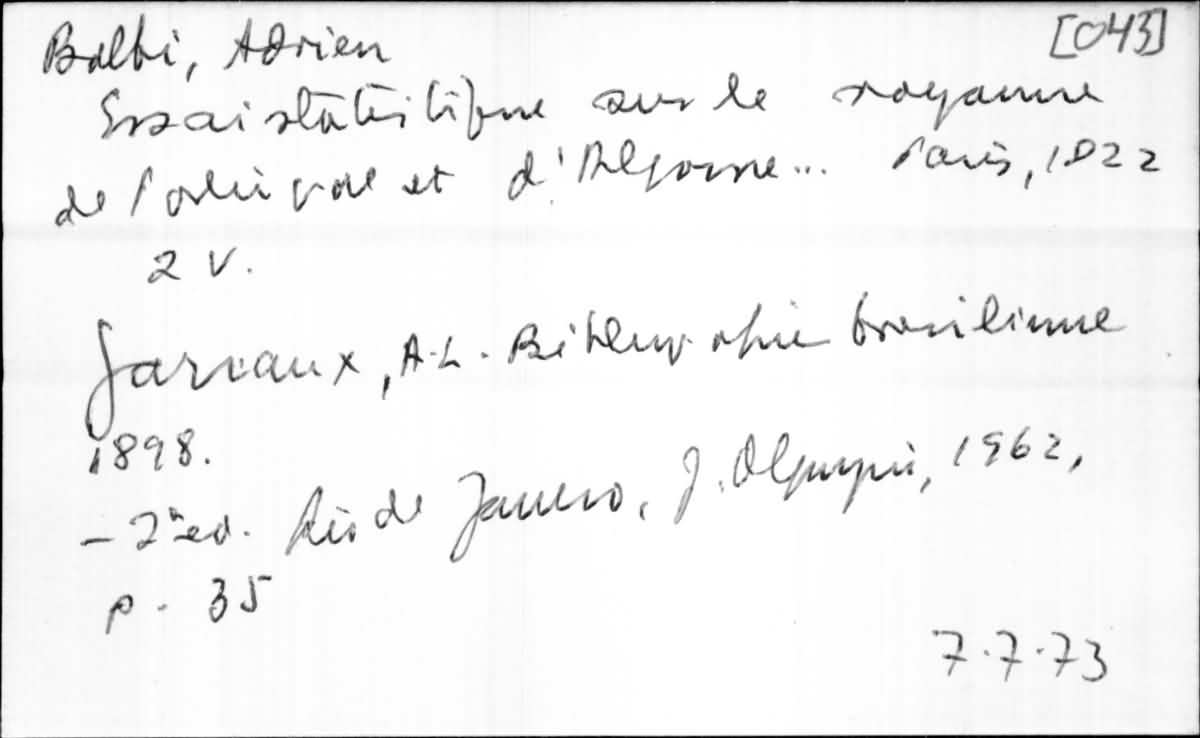 Balbi, Adrien [043]
Essai statistique sur le royaume
de Portugal et d'Algarve... Paris, 1822
2 v.
Garraux, A.L. Bibliographie brésilienne
1898.
- 2ª ed. Rio de Janeiro, J. Olympio, 1962,
p. 35
7.7.73